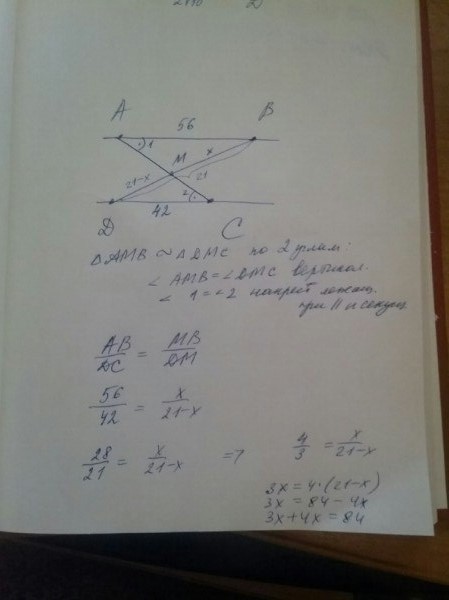 A B
56
1
M x
21-x 21
2
42
D C
△AMB ~ △DMC по 2 углам:
∠AMB = ∠DMC вертикал.
∠1 = ∠2 накрест лежащ.
при || и секущ
AB/DC = MB/DM
56/42 = x/21-x
28/21 = x/21-x => 4/3 = x/21-x
3x = 4·(21-x)
3x = 84 - 4x
3x + 4x = 84